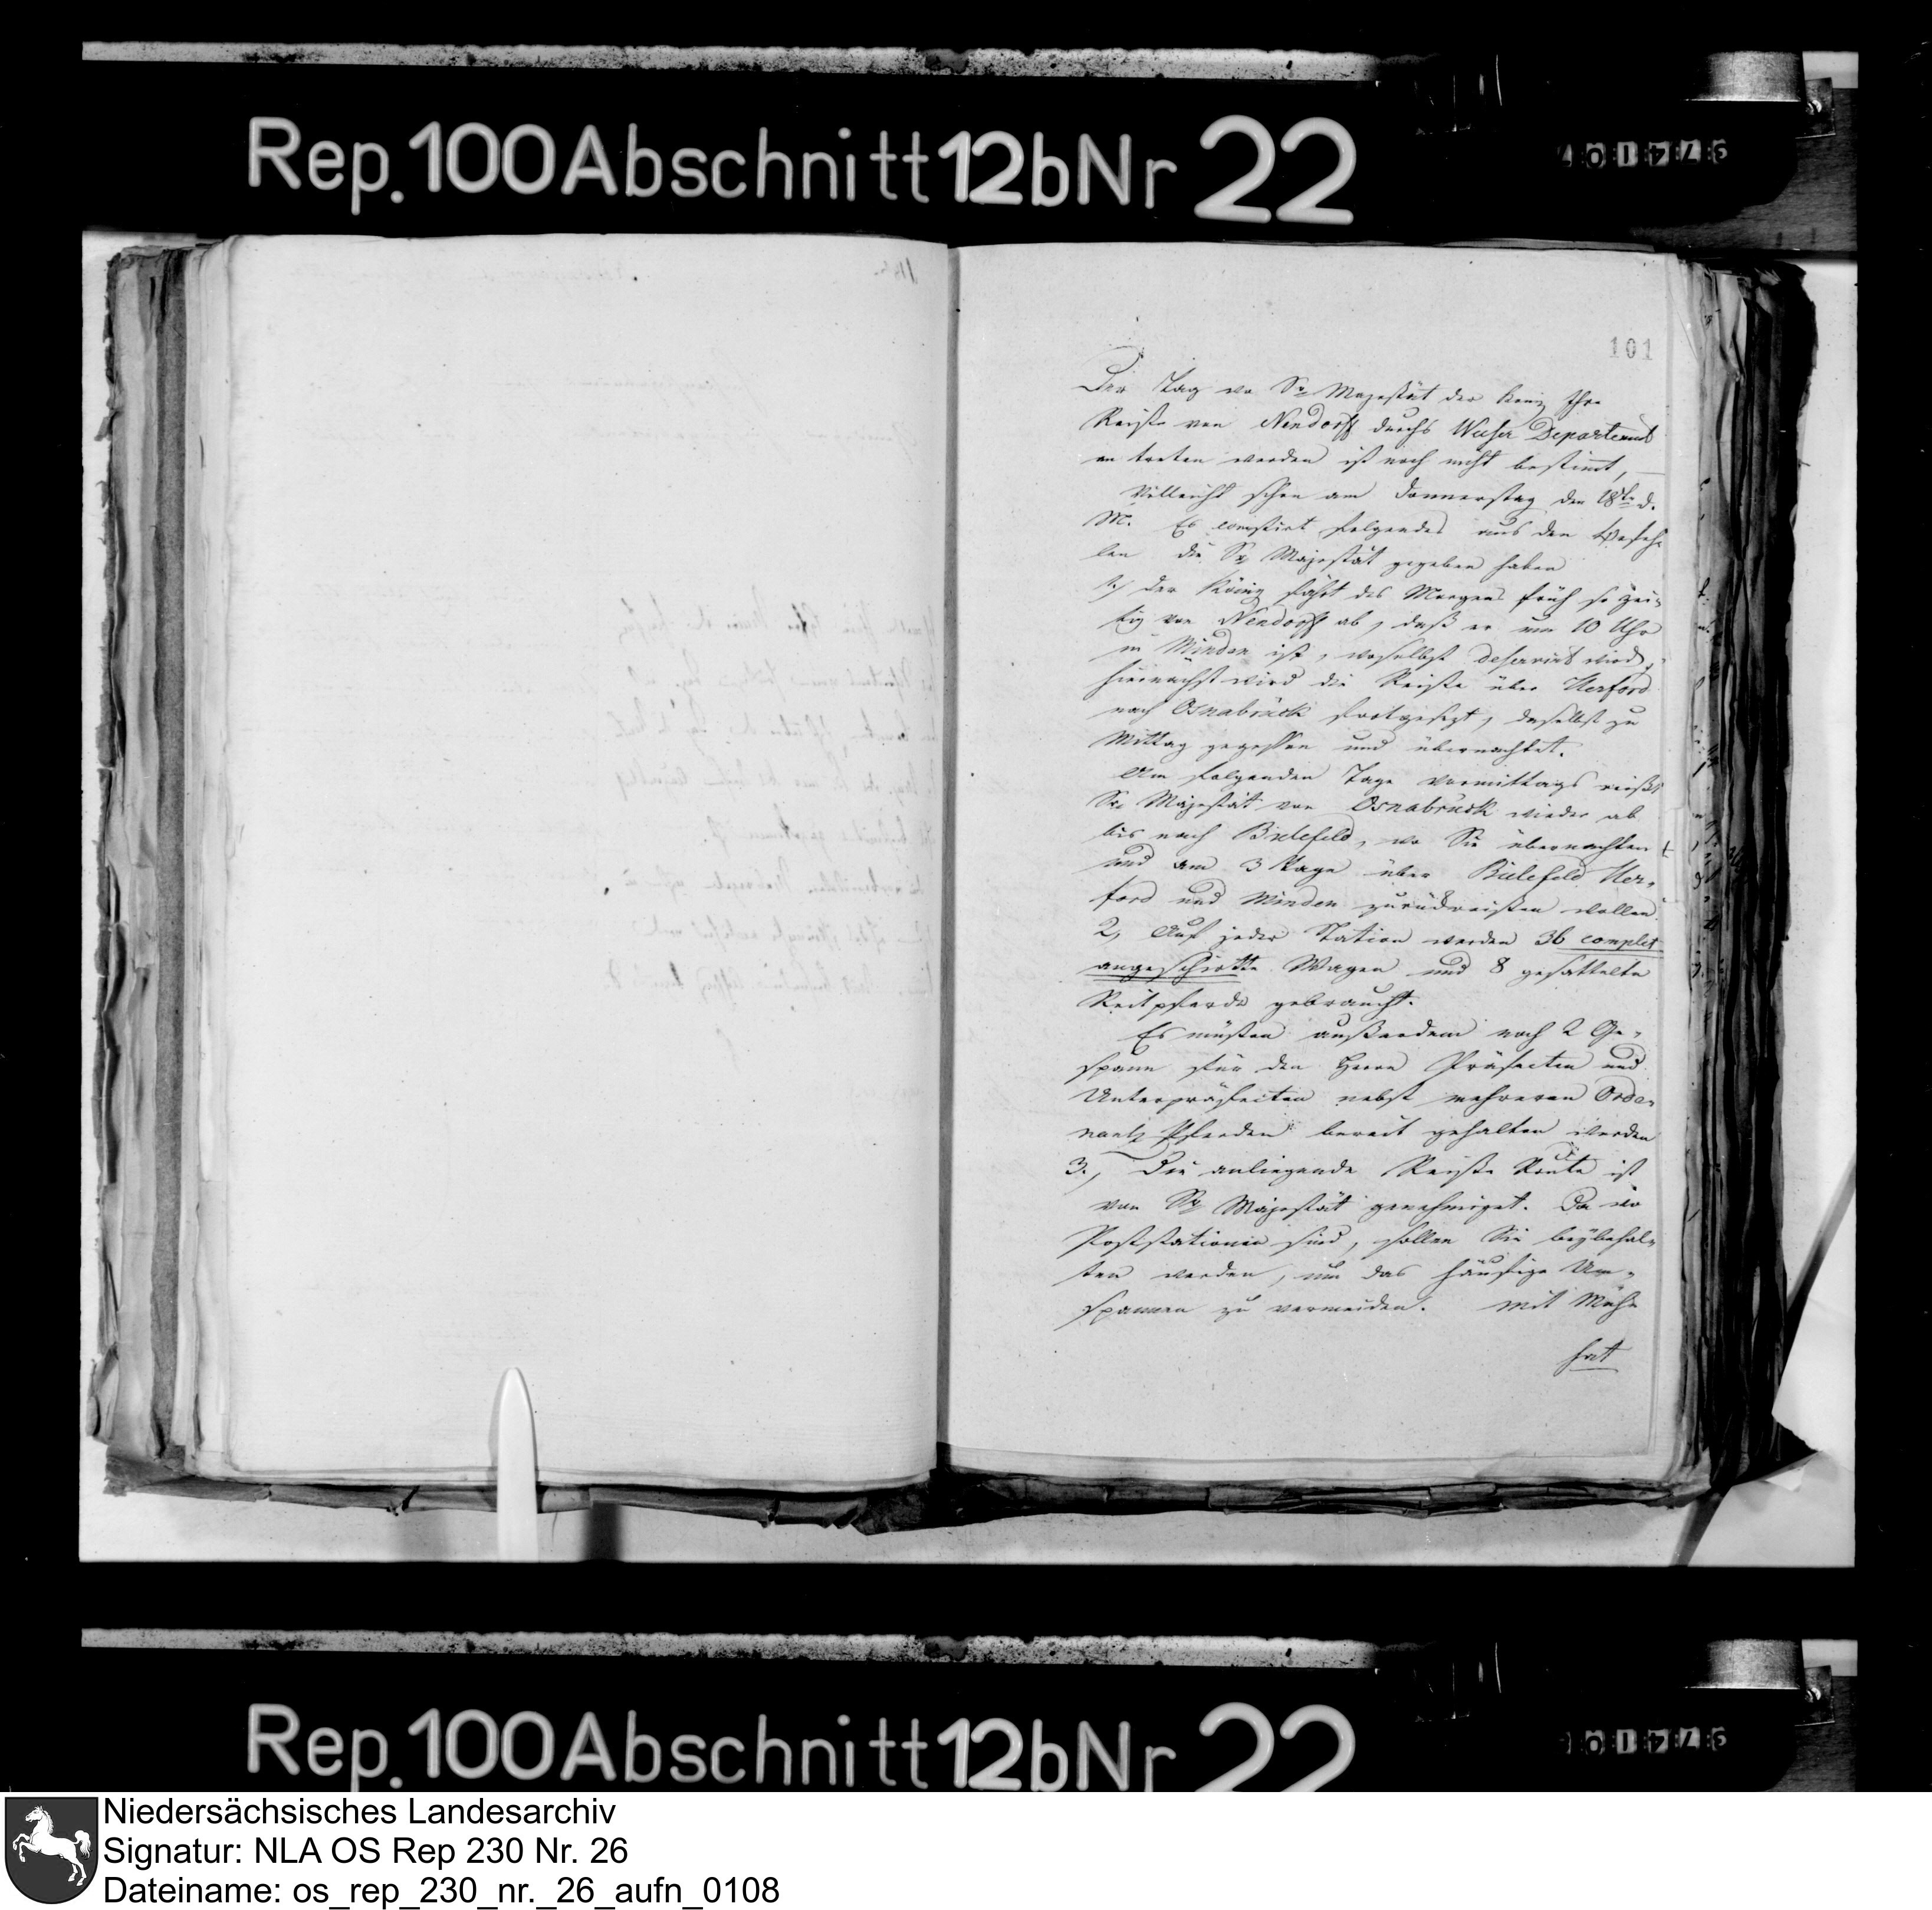 Rep. 100 Abschnitt 12b Nr 22
101
Der Tag wo Sr Majestät der König Ihre
Reise von Nendorff durchs Weser Departement
an treten werden ist noch nicht bestimt,
Villeicht schon am Donnerstag den 18ten d.
M. Es constirt folgendes aus den Befeh-
len die Sr Majestät gegeben haben
1., Der König fährt des Morgens früh so zei-
tig von Nendorff ab, daß er um 10 Uhr
in Minden ist, woselbst dejeunirt wird,
hiernächst wird die Reise über Herford
nach Osnabrück fortgesezt, daselbst zu
Mittag gegessen und übernachtet.
Am folgenden Tage vormittags reißt
Sr. Majestät von Osnabrück wieder ab
bis nach Bielefeld, wo Sie übernachten
und am 3 Tage über Bielefeld Her-
ford und Minden zurückreißen wollen.
2, Auf jeder Station werden 36 complet
angeschirrte Wagen und 8 gesattelte
Reitpferde gebraucht.
Es müßen außerdem noch 2 Ge-
spann für den Herrn Präfecten und
Unterpräfecten nebst mehreren Orde-
nantz Pferden bereit gehalten werden
3., Die anliegende Reise Route ist
von Sr Majestät genehmiget. Da wo
Poststationen sind, sollen Sie beybehal-
ten werden, um das häufige Um-
spannen zu vermeiden. Mit Mühe
hat
Rep. 100 Abschnitt 12b Nr 22
Niedersächsisches Landesarchiv
Signatur: NLA OS Rep 230 Nr. 26
Dateiname: os_rep_230_nr._26_aufn_0108